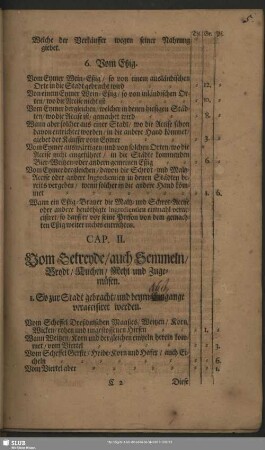 Tlr. Gl. Pf.
Welche der Verkäuffer wegen seiner Nahrung
giebet.
6. Vom Eßig.
Vom Eymer Wein-Eßig / so von einem ausländischen
Orte in die Stadt gebracht wird 12.
Von einem Eymer Wein-Eßig / so von inländischen Or-
ten / wo die Accise nicht ist
Vom Eymer dergleichen / welcher in denen hiesigen Städ-
ten / wo die Accise ist / gemachet wird 8.
Wann aber solcher aus einer Stadt / wo die Accise schon
davon entrichtet worden / in die andere Stadt kommet /
giebet der Käuffer vom Eymer
Vom Eymer auswärtigen und von solchen Orten / wo die
Accise nicht eingeführet / in die Städte kommenden
Bier-Weitzen- oder andern gemeinen Eßig 6.
Vom Eymer dergleichen / davon die Schrot- und Maltz-
Accise oder anderer Ingredientien in denen Städten be-
reits vergeben / wenn solcher in die andere Stadt kom-
met 1. 6.
Wann ein Eßig-Brauer die Maltz- und Schrot-Accise
oder andere benöthigte Ingredientien einmahl verac-
cisiret / so darff er vor seine Person von dem gemach-
ten Eßig weiter nichts entrichten.
CAP. II.
Vom Getreyde / auch Semmeln /
Brodt / Kuchen / Mehl und Zuge-
müsen.
1. So zur Stadt gebracht / und beym Eingange
veraccisiret werden.
Vom Scheffel Dreßdnischen Maaßes, Weitzen / Korn,
Wicken / Erbsen und ungestossenen Hirsen 1.
Wann Weitzen, Korn und dergleichen einzeln herein kom-
met / vom Viertel 3.
Vom Scheffel Gerste / Heyde-Korn und Hafer / auch Ei-
cheln 6.
Vom Viertel aber
C 2 Diese
SLUB